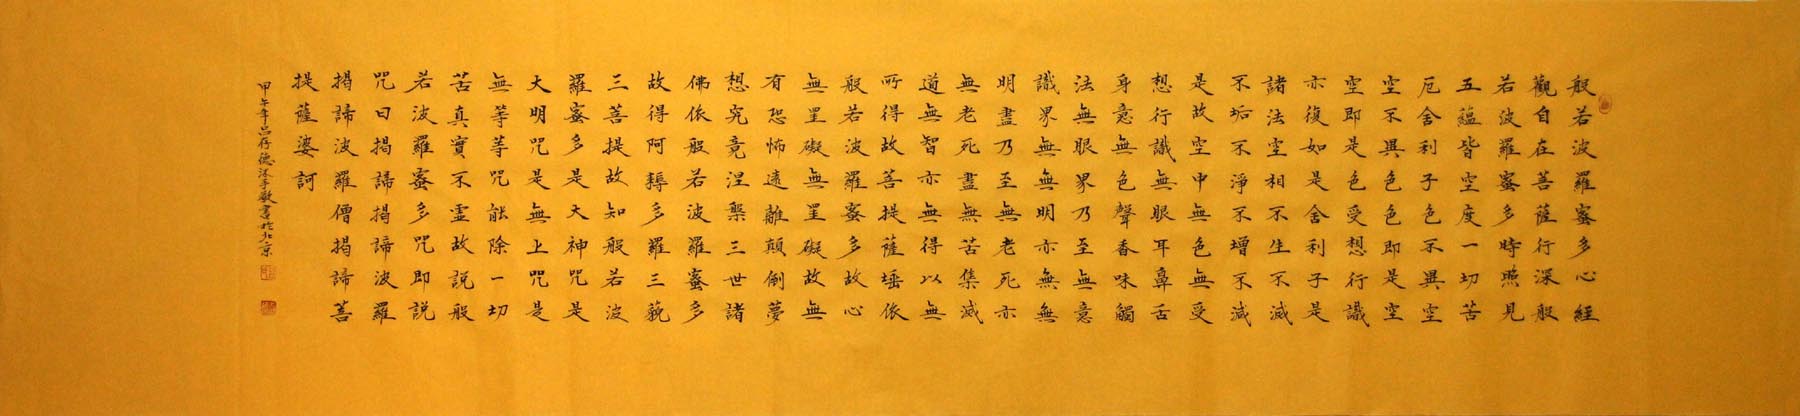 般若波羅蜜多心經
觀自在菩薩行深般
若波羅蜜多時照見
五蘊皆空度一切苦
厄舍利子色不異空
空不異色色即是空
空即是色受想行識
亦復如是舍利子是
諸法空相不生不滅
不垢不淨不增不減
是故空中無色無受
想行識無眼耳鼻舌
身意無色聲香味觸
法無眼界乃至無意
識界無無明亦無無
明盡乃至無老死亦
無老死盡無苦集滅
道無智亦無得以無
所得故菩提薩埵依
般若波羅蜜多故心
無罣礙無罣礙故無
有恐怖遠離顛倒夢
想究竟涅槃三世諸
佛依般若波羅蜜多
故得阿耨多羅三藐
三菩提故知般若波
羅蜜多是大神咒是
大明咒是無上咒是
無等等咒能除一切
苦真實不虛故説般
若波羅蜜多咒即説
咒曰揭諦揭諦波羅
揭諦波羅僧揭諦菩
提薩婆訶
甲午年呂存德沐手敬書於北京